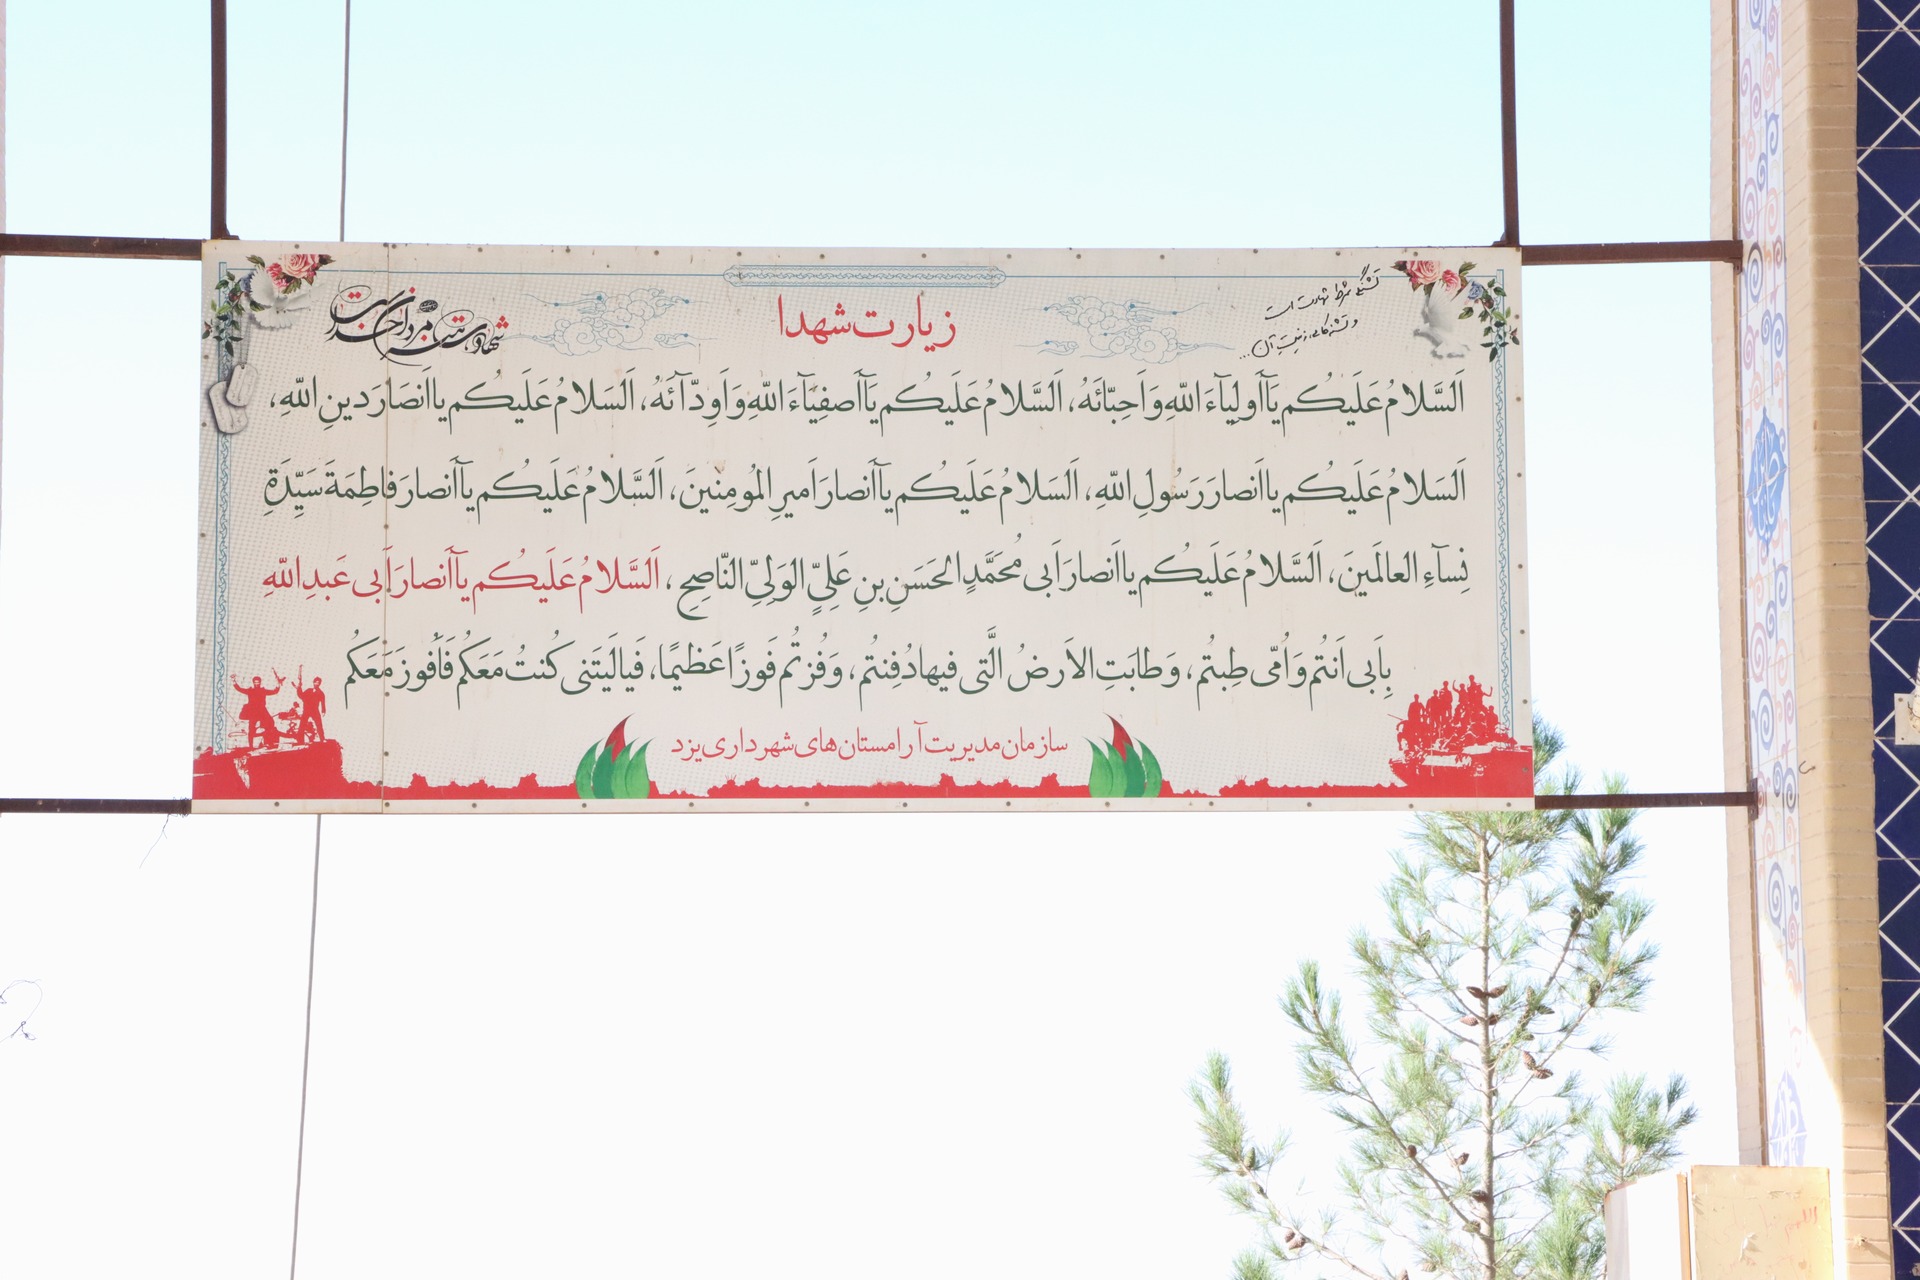 زیارت شهدا
تشنگی شرط شهادت است
و تشنه‌کامی، زینتِ آن...
شهادت هنر مردان خداست
اَلسَّلامُ عَلَیکُم یَآاَولِیآءَ اللّهِ وَ اَحِبّائَهُ، اَلسَّلامُ عَلَیکُم یَآاَصفِیَآءَ اللّهِ وَ اَوِدّآئَهُ، اَلسَلامُ عَلَیکُم یااَنصَارَ دینِ اللّهِ،
اَلسَلامُ عَلَیکُم یااَنصارَ رَسُولِ اللّهِ، اَلسَلامُ عَلَیکُم یآاَنصارَ اَمیرِ المُومِنینَ، اَلسَّلامُ عَلَیکُم یآاَنصارَ فاطِمَةَ سَیِّدَةِ
نِسآءِ العالَمینَ، اَلسَّلامُ عَلَیکُم یااَنصارَ اَبی مُحَمَّدٍ الحَسَنِ بنِ عَلِیٍّ الوَلِیِّ النّاصِحِ، اَلسَّلامُ عَلَیکُم یآاَنصارَ اَبی عَبدِ اللّهِ
بِاَبی اَنتُم وَ اُمّی طِبتُم، وَ طابَتِ الاَرضُ الَّتی فیها دُفِنتُم، وَ فُزتُم فَوزًا عَظیمًا، فَیا لَیتَنی کُنتُ مَعَکُم فَاَفُوزَ مَعَکُم
سازمان مدیریت آرامستان‌های شهرداری یزد